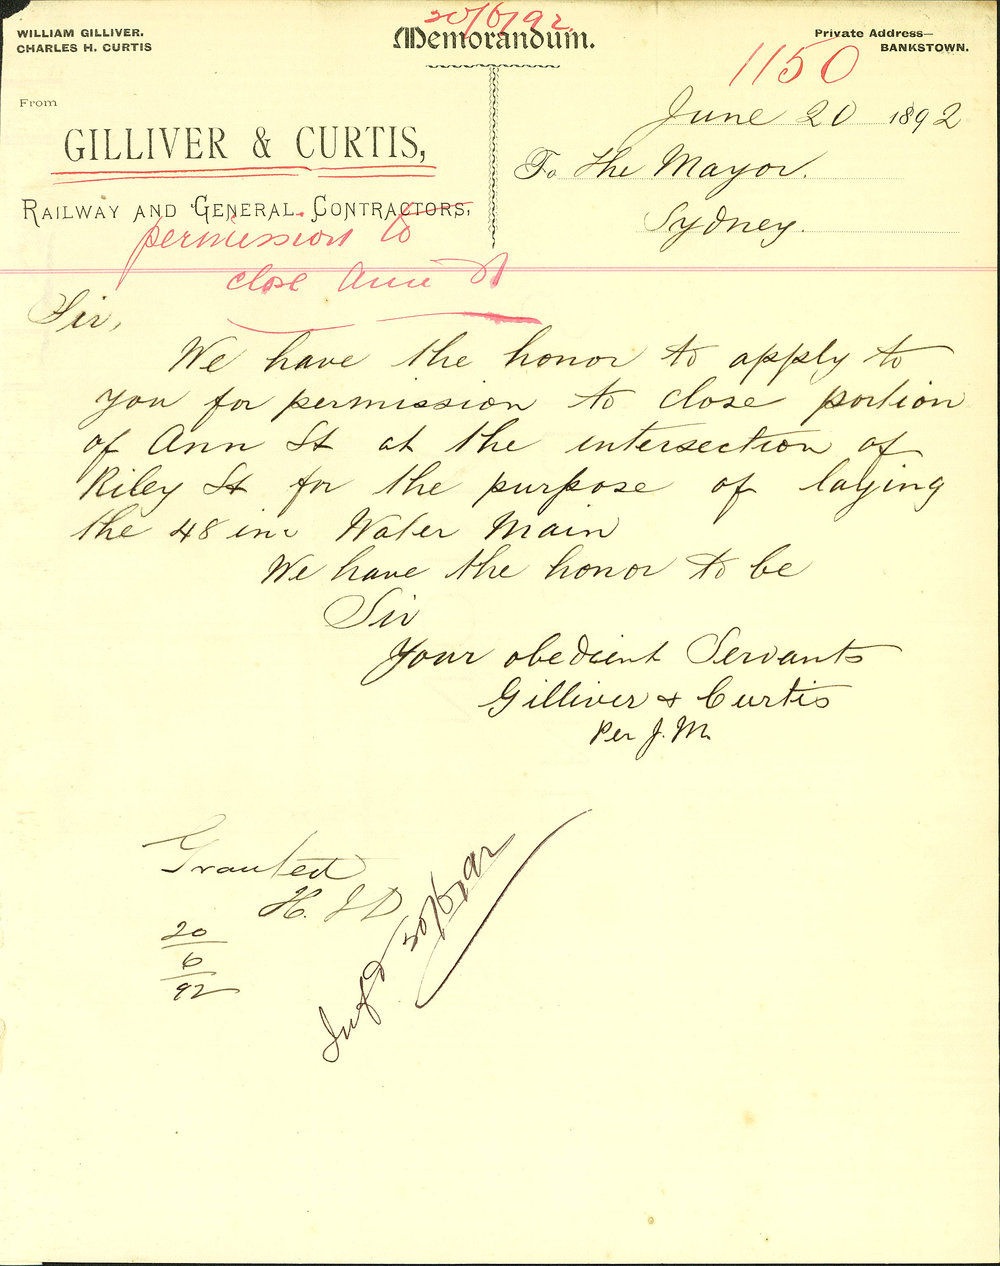 20/6/92
WILLIAM GILLIVER.
CHARLES H. CURTIS
Memorandum.
Private Address—
BANKSTOWN.
1150
From
GILLIVER & CURTIS,
RAILWAY AND GENERAL CONTRACTORS,
June 20 1892
To the Mayor.
Sydney.
permission to
close Ann St
Sir,
We have the honor to apply to
you for permission to close portion
of Ann St at the intersection of
Riley St for the purpose of laying
the 48 in. Water Main
We have the honor to be
Sir
Your obedient Servants
Gilliver & Curtis
Per J.M.
Granted
H. J D
20
6
92
Inf'd 20/6/92